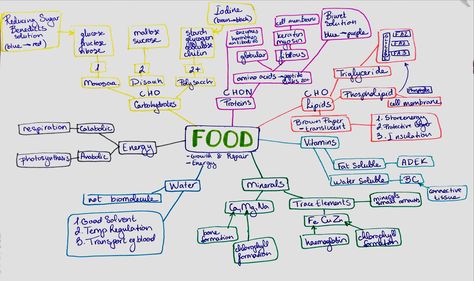 Reducing Sugar
Benedicts
solution
(blue → red)
glucose
fructose
ribose
1
Monosacc
maltose
sucrose
2
Disacch
starch
glycogen
cellulose
chitin
2+
Polysacch
Iodine
(brown → black)
CHO
Carbohydrates
enzymes
hormones
antibodies
globular
cell membrane
keratin
myosin
fibrous
amino acids → peptide
CHON
Proteins
Biuret
solution
blue → purple
Triglyceride
CHO
Lipids
Phospholipid
cell membrane
Brown Paper
- translucent
1. Store energy
2. Protective
3. Insulation
FOOD
- Growth & Repair
- Energy
Energy
Catabolic
respiration
Anabolic
photosynthesis
Water
not biomolecule
1 Good Solvent
2. Temp Regulation
3. Transport eg blood
Vitamins
Fat Soluble
ADEK
Water Soluble
BC
connective
tissue
Minerals
Ca, Mg, Na
bone
formation
chlorophyll
formation
Trace Elements
minerals
small amounts
Fe Cu Zn
haemoglobin
chlorophyll
formation